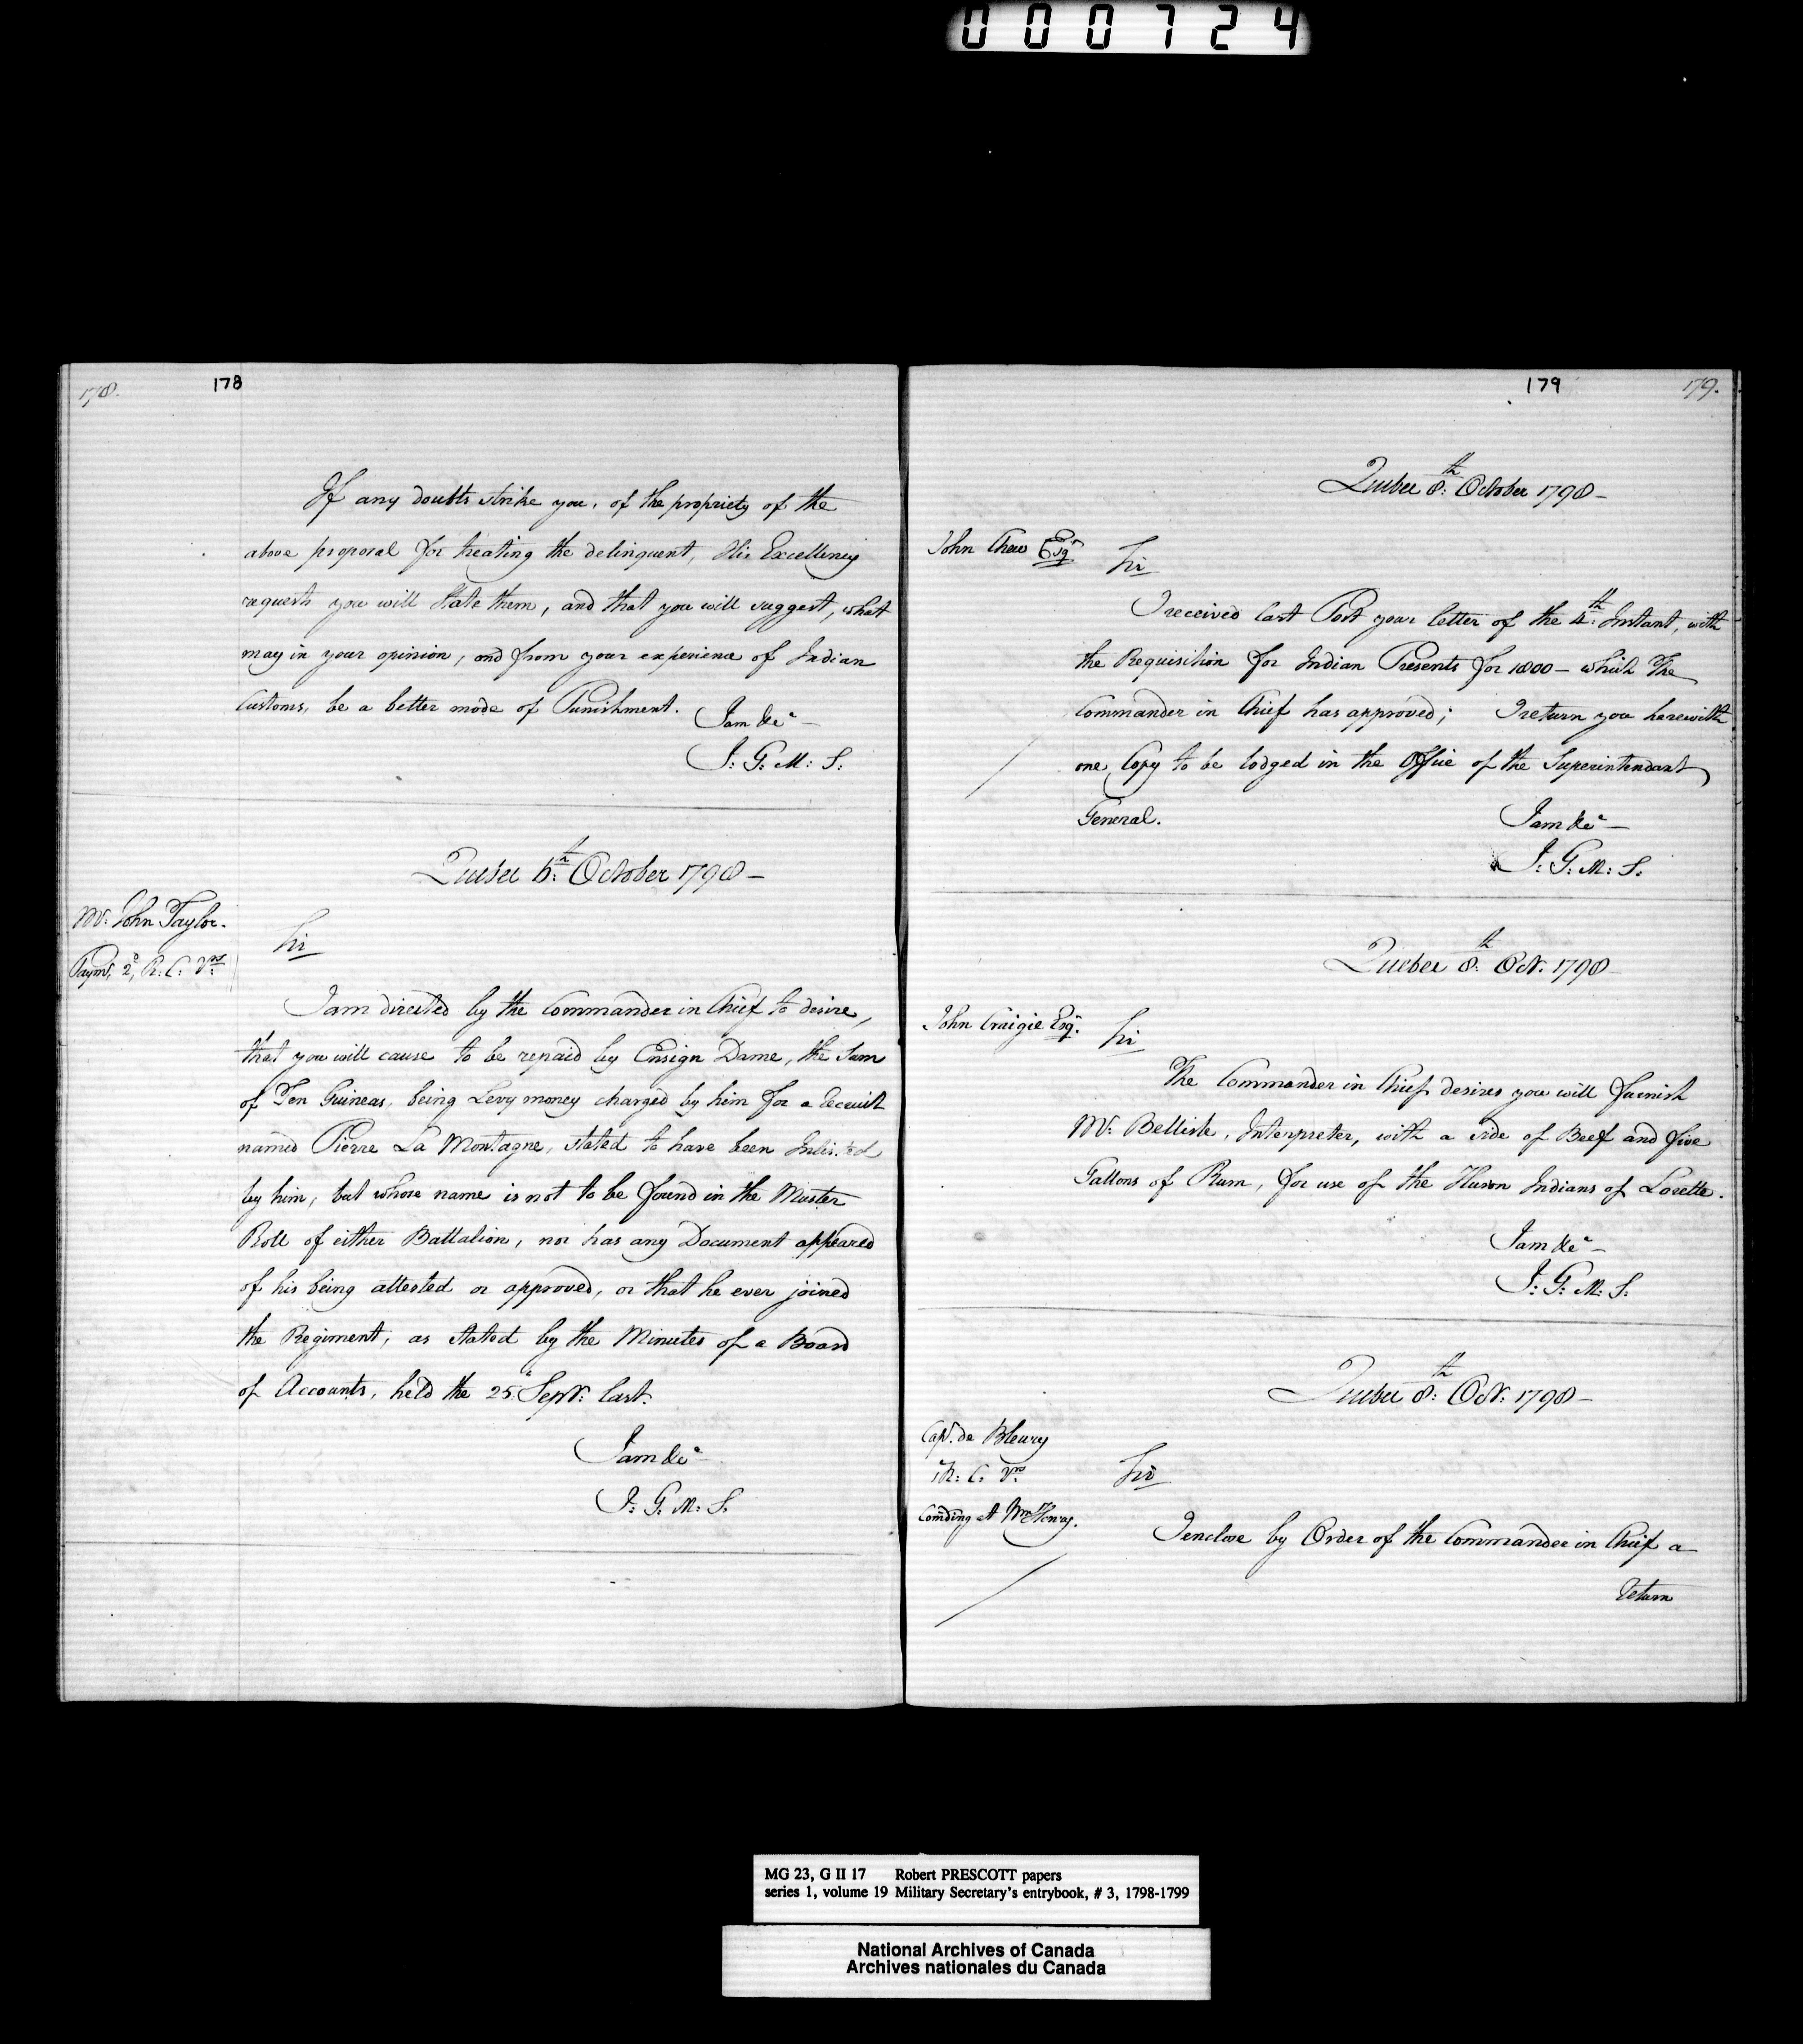 000724
178.
178
If any doubts strike you, of the propriety of the
above proposal for treating the delinquent, His Excellency
requests you will state them, and that you will suggest, what
may in your opinion, and from your experience of Indian
Customs, be a better mode of Punishment.
I am &ca—
J: G: M: S:
Quebec 6th: October 1798—
Mr: John Taylor.
Paymr, 2d, R: C: Vrs
Sir
I am directed by the Commander in Chief to desire,
that you will cause to be repaid by Ensign Dame, the Sum
of Ten Guineas, being Levy money charged by him for a Recruit
named Pierre La Montagne, stated to have been Inlisted
by him, but whose name is not to be found in the Muster
Roll of either Battalion, nor has any Document appeared
of his being attested or approved, or that he ever joined
the Regiment, as stated by the Minutes of a Board
of Accounts, held the 25: Septr: last.
I am &ca—
J: G: M: S.
179
179.
Quebec 8th: October 1798—
John Chew Esqr
Sir
I received last Post your letter of the 4th: Instant, with
the Requisition for Indian Presents for 1800— which The
Commander in Chief has approved; I return you herewith
one Copy to be lodged in the Office of the Superintendant
General.
I am &ca—
J: G: M: S.
Quebec 8th: Octr. 1798—
John Craigie Esqr.
Sir
The Commander in Chief desires you will furnish
Mr: Bellisle, Interpreter, with a side of Beef and five
Gallons of Rum, for use of the Huron Indians of Lorette.
I am &ca—
J: G: M: S.
Quebec 8th: Octr: 1798—
Capt. de Bleury
1 R: C: Vrs
Comding at Wm Henry.
Sir
I enclose by Order of the Commander in Chief a
Return
MG 23, G II 17 Robert PRESCOTT papers
series 1, volume 19 Military Secretary's entrybook, # 3, 1798-1799
National Archives of Canada
Archives nationales du Canada